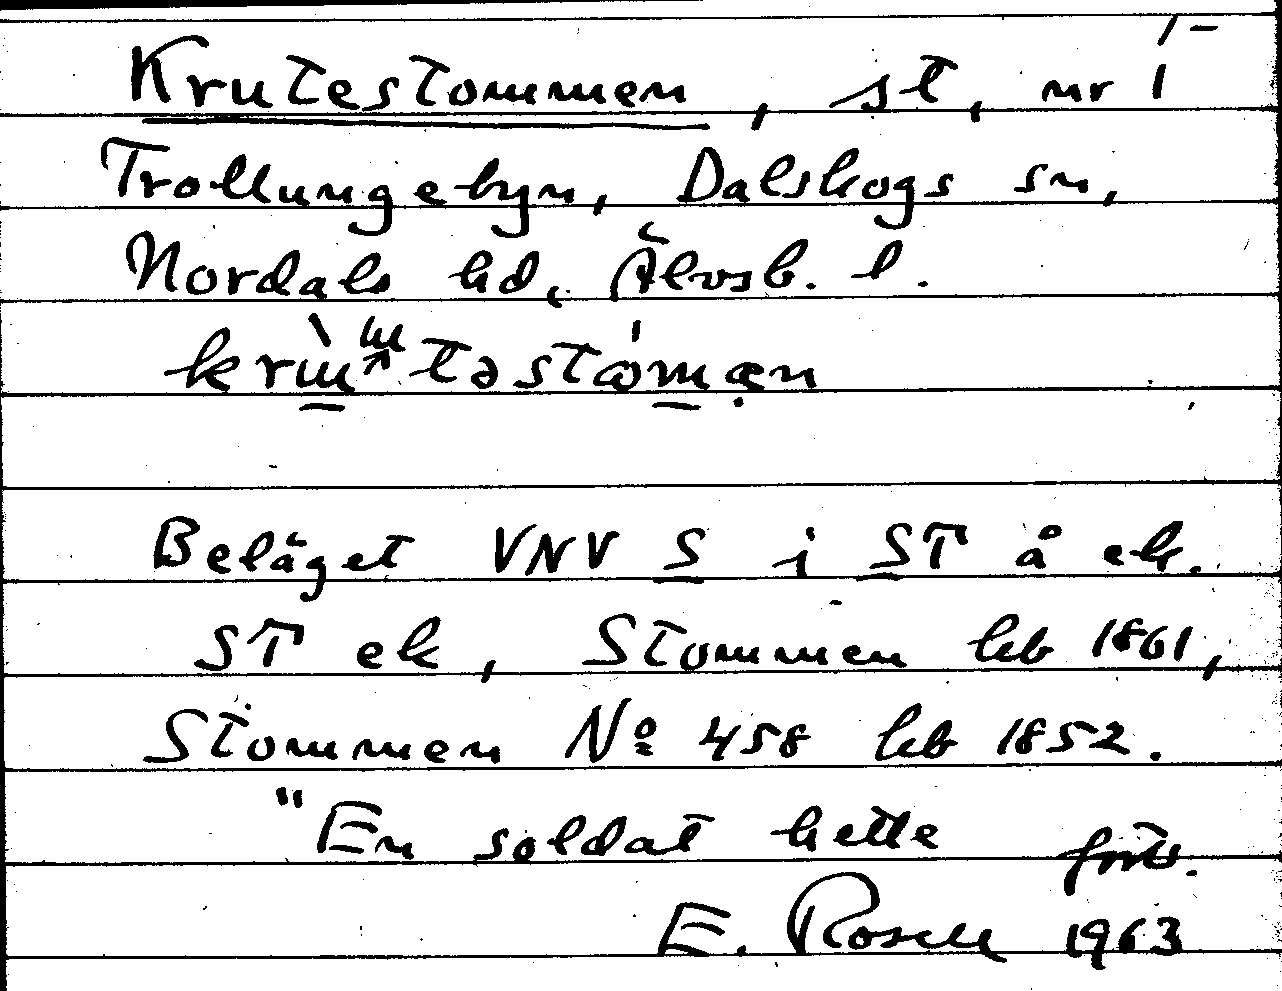 1-
Krutestommen, st, nr 1
Trollungebyn, Dalskogs sn,
Nordals hd, Älvsb. l.
Beläget VNV S i ST å ek.
ST ek, Stommen kb 1861,
Stommen No 458 kb 1852.
"En soldat hette forts.
E. Rosell 1963